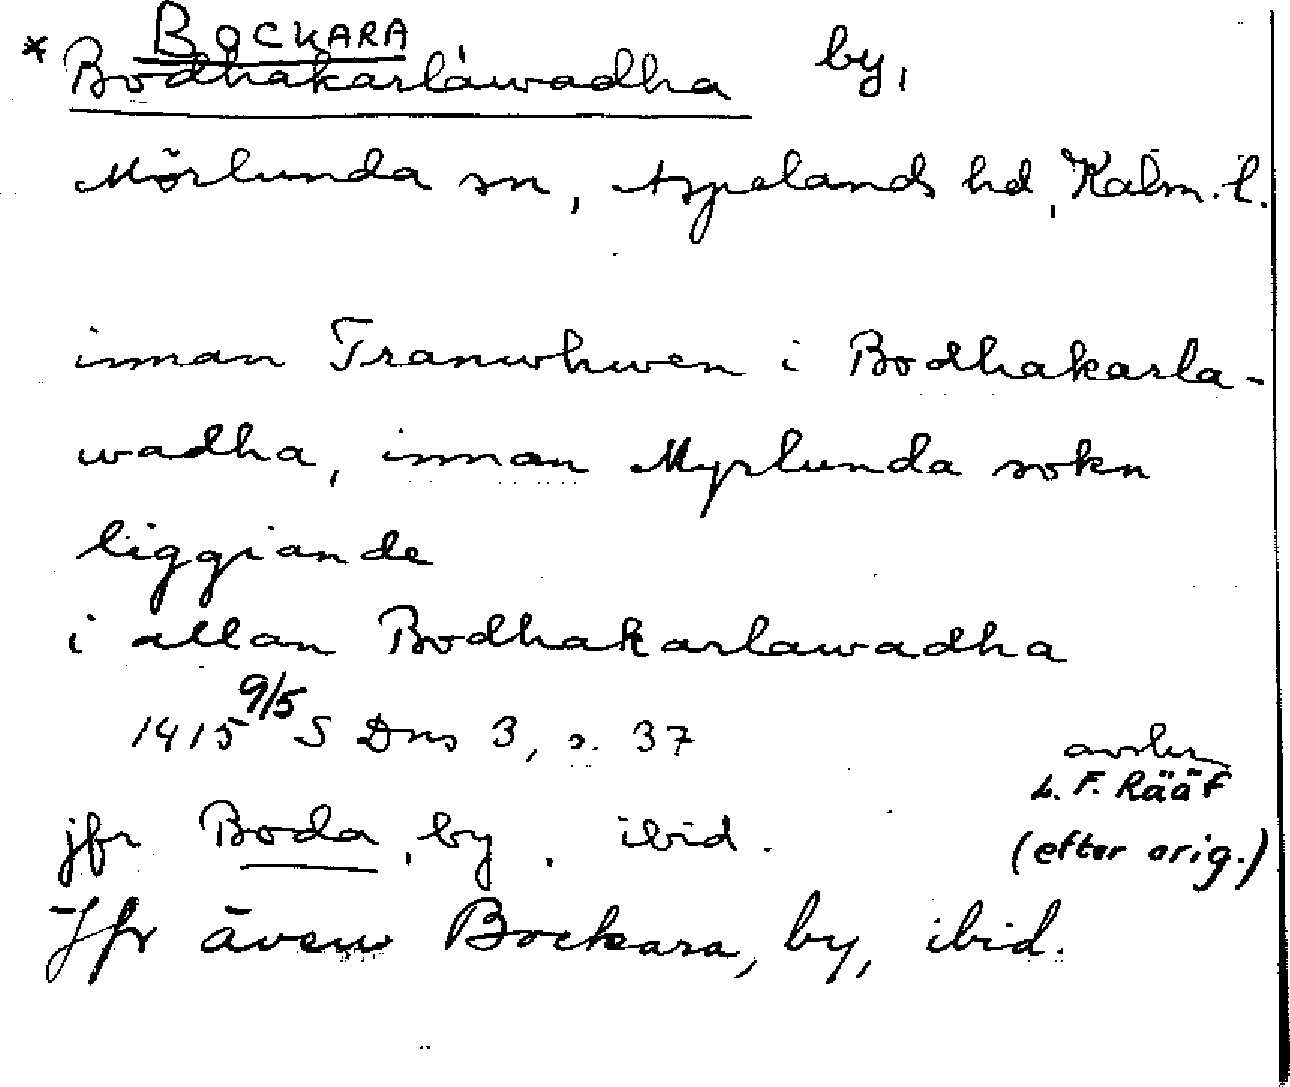 BOCKARA
* Bodhakarlawadha by,
Mörlunda sn, Aspelands hd, Kalm. l.
innan Tranwhwen i Bodhakarla-
wadha, innan Myrlunda sokn
liggiande
i allan Bodhakarlawadha
1415 9/5 S Dns 3, s. 37
avskr
L. F. Rääf
(efter orig.)
jfr Boda, by, ibid.
Jfr även Bockara, by, ibid.